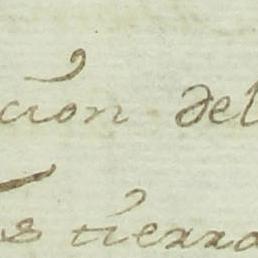 ción del
s tierra